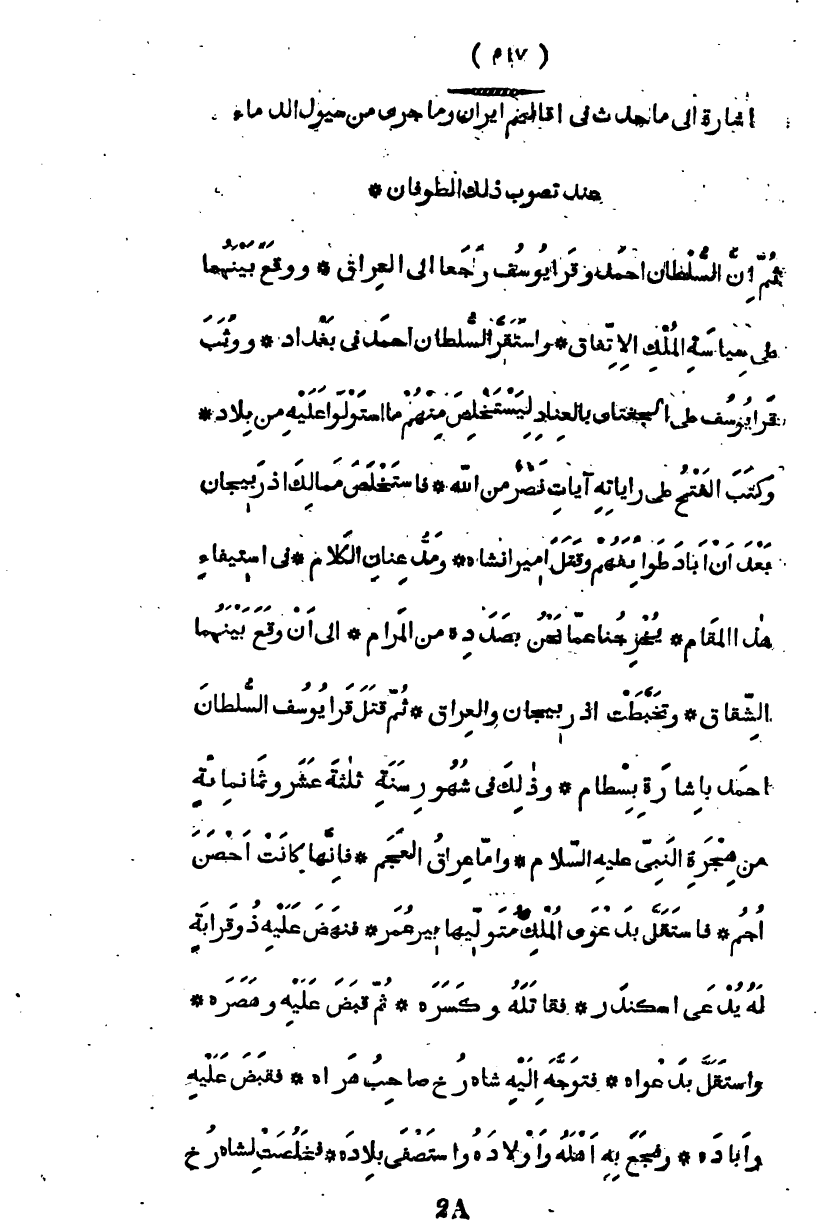 ( ٤١٧ )
اشارة الى ما حدث فى اقاليم ايران وما جرى من سيول الدماء
عند تصوب ذلك الطوفان *
ثُمَّ اِنَّ السُّلْطان احمَد وقَرا يُوسُف رَجَعا الى العِراق * ووقَعَ بَيْنَهُما
على سِياسَةِ المُلْكِ الاِتِّفاق * واسْتَقَرَّ السُّلطان احمَد فى بَغْداد * ووَثَبَ
قَرا يُوسُف على الجغتاى بالعِنادِ لِيَسْتَخْلِصَ مِنْهُمْ ما اسْتَوْلَوا عَلَيْهِ من بِلاد *
وكَتَبَ الفَتْحُ على راياتِهِ آياتِ نَصْرٌ من اللّه * فاستَخْلَصَ مَمالِكَ اذرَبِيجان
بَعْدَ اَنْ اَبادَ طَوائِفَهُمْ وقَتَلَ اَمِيرانشاه * ومَدُّ عِنانِ الكَلام * فى اسْتِيفاءِ
هٰذا المَقام * يُخْرِجُنا عمّا نَحْنُ بصَدَدِه من المَرام * الى اَنْ وقَعَ بَيْنَهُما
الشِّقاق * وتَخَبَّطَتْ اذربيجان والعِراق * ثُمَّ قَتَلَ قَرا يُوسُف السُّلطانَ
احمَد باِشارَةِ بِسْطام * وذٰلِكَ فى شُهُورِ سَنَةِ ثلٰثةَ عَشَر وثَمانمائةٍ
من هِجْرَةِ النَبِىّ عليهِ السّلام * وامّا عِراقُ العَجَم * فاِنَّها كانَتْ اَحْصَنَ
اُجُم * فاستَقَلَّ بدَعْوَى المُلْكِ مُتَوَلِّيها بير عُمَر * فنهَضَ عَلَيْهِ ذُو قَرابَةٍ
لَهُ يُدْعَى اسكندَر * فقاتَلَهُ وكَسَرَه * ثُمّ قبَضَ عَلَيْهِ وهَصَرَه *
واستَقَلَّ بدَعْواه * فتوَجَّهَ اِلَيْهِ شاه رُخ صاحِبُ هَراه * فقبَضَ عَلَيْهِ
واَبادَه * وفجَعَ بِهِ اَهْلَهُ واَوْلادَهُ واستَصْفَى بِلادَه * فخَلُصَتْ لشاه رُخ
2A